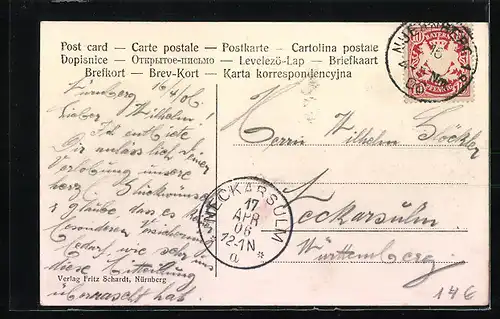 Post card — Carte postale — Postkarte — Cartolina postale
Dopisnice — Открытое-письмо — Levelező-Lap — Briefkaart
Brefkort — Brev-Kort — Karta korrespondencyjna
NUERNBERG
BAYERN
Nürnberg 16/4/06
Lieber Wilhelm!
Ich entbiete
Dir anlässlich Deiner
Verlobung unsere
herzl. Glückwünsche
glaube, dass es k
besonderen Versicherung
bedarf, wie sehr uns
diese Mitteilung
überrascht hat.
Herrn Wilhelm
Neckarsulm
Württemberg.
NECKARSULM
17
APR
06
12-1N
a
*
Verlag Fritz Schardt, Nürnberg
14€